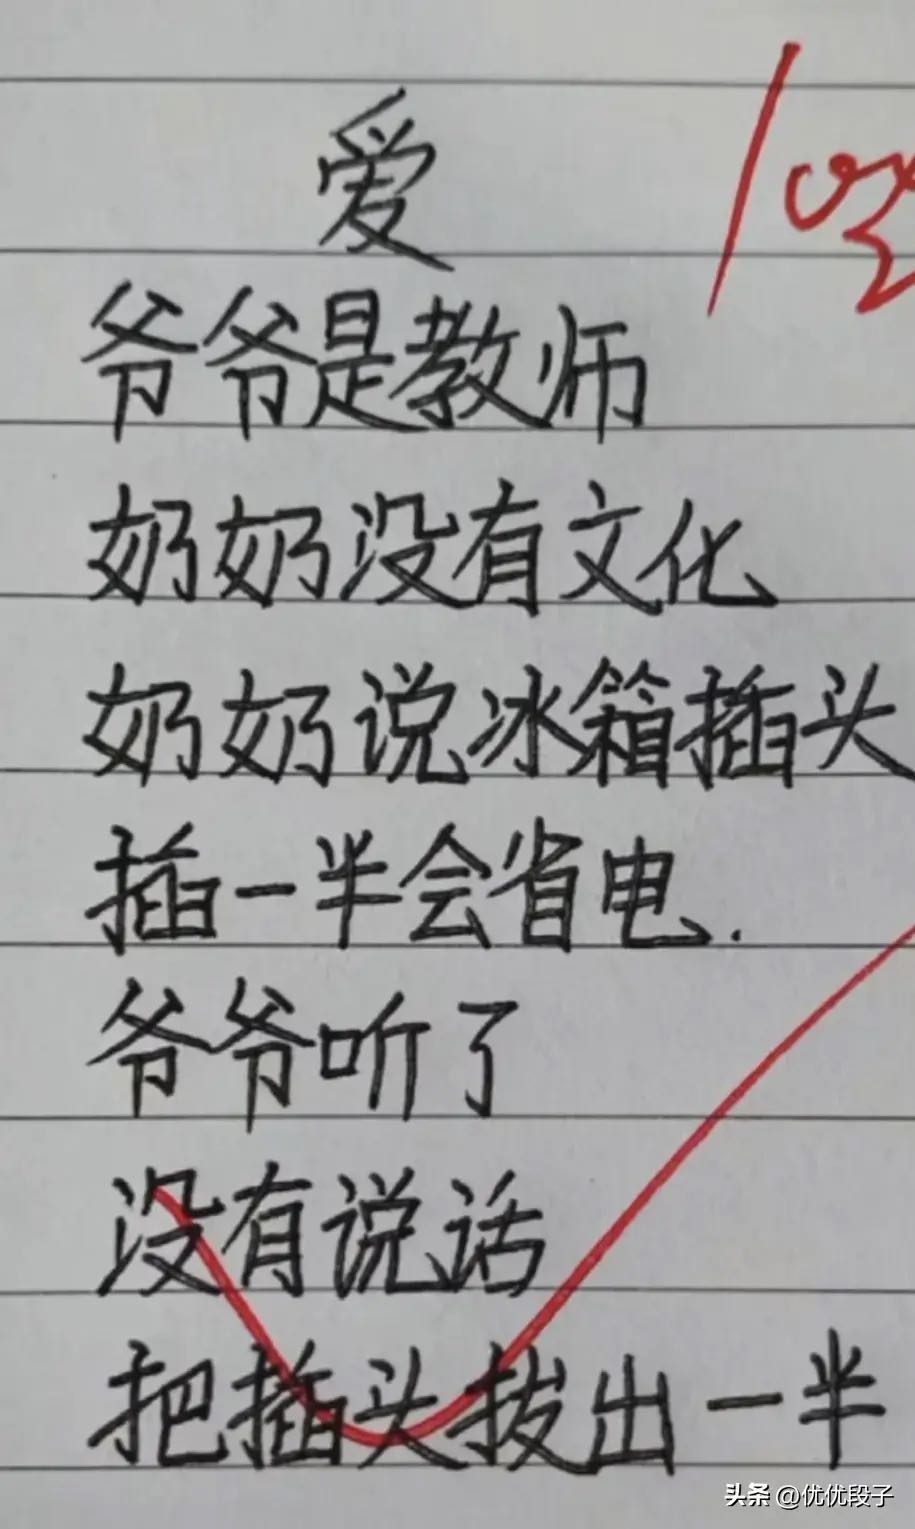 爱
爷爷是教师
奶奶没有文化
奶奶说冰箱插头
插一半会省电.
爷爷听了
没有说话
把插头拔出一半
头条 @优优段子